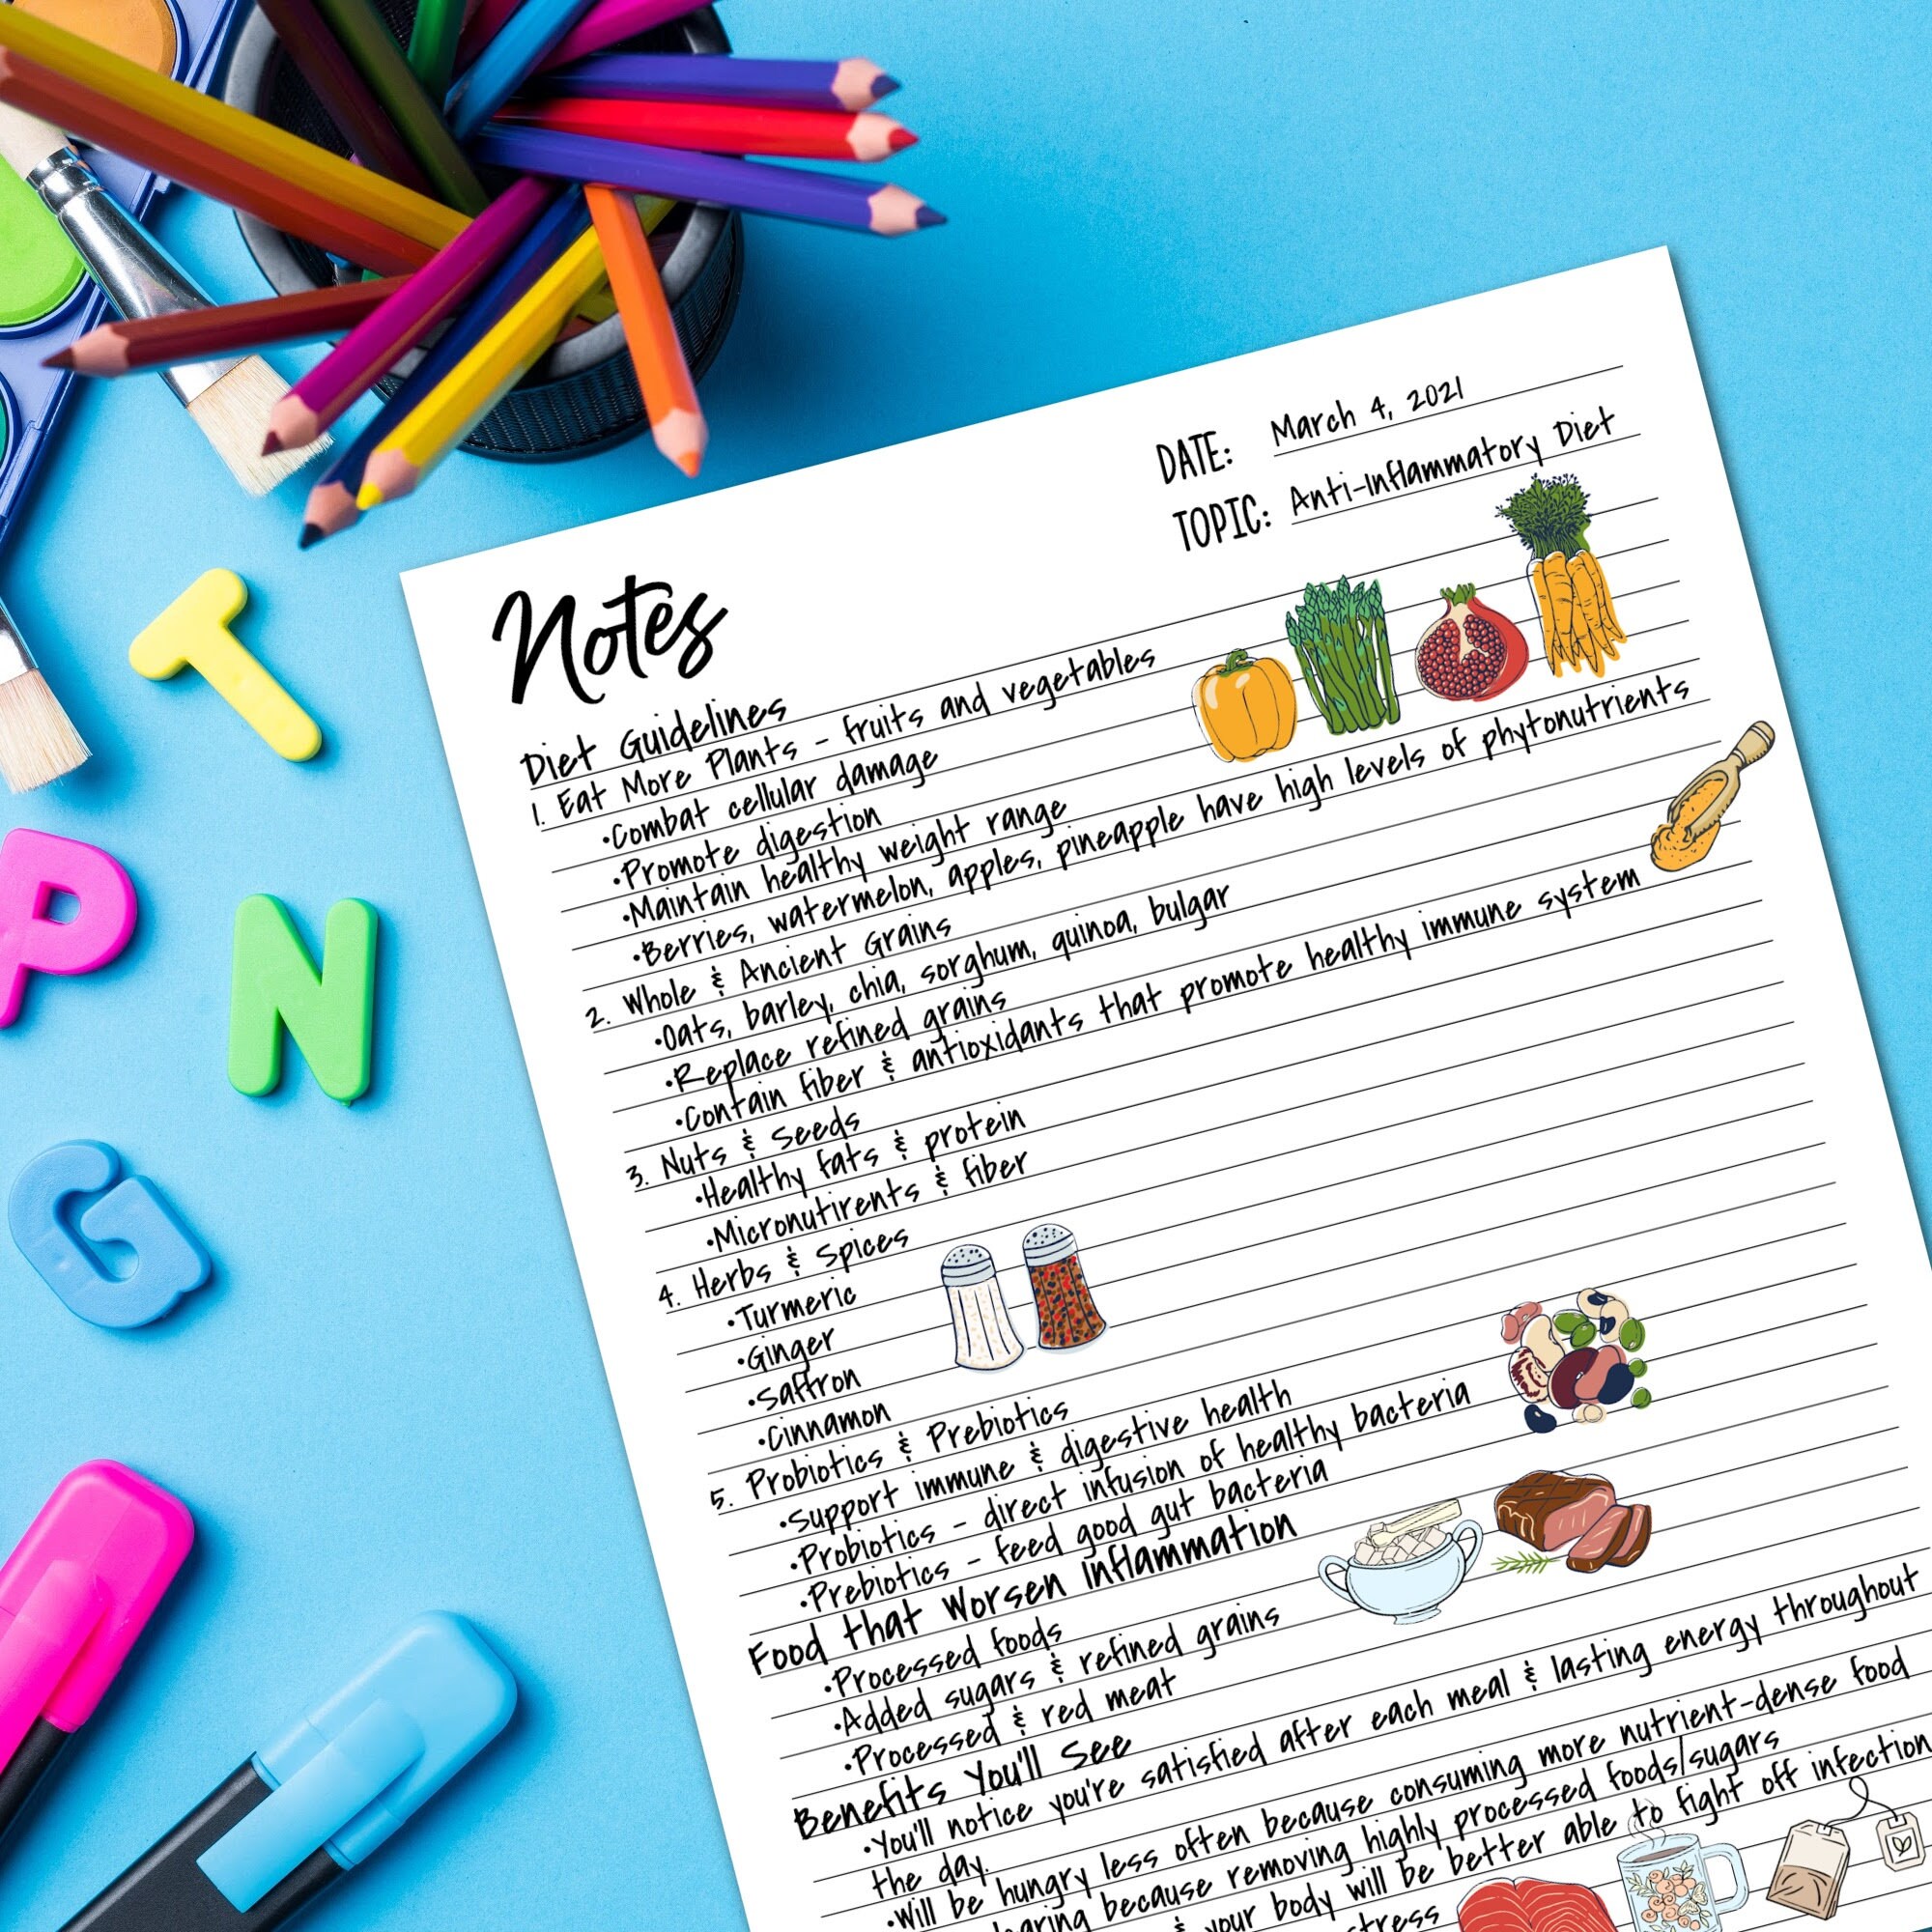 Notes
DATE: March 4, 2021
TOPIC: Anti-Inflammatory Diet
Diet Guidelines
1. Eat More Plants - fruits and vegetables
•Combat cellular damage
•Promote digestion
•Maintain healthy weight range
•Berries, watermelon, apples, pineapple have high levels of phytonutrients
2. Whole & Ancient Grains
•Oats, barley, chia, sorghum, quinoa, bulgar
•Replace refined grains
•Contain fiber & antioxidants that promote healthy immune system
3. Nuts & Seeds
•Healthy fats & protein
•Micronutirents & fiber
4. Herbs & Spices
•Turmeric
•Ginger
•Saffron
•Cinnamon
5. Probiotics & Prebiotics
•Support immune & digestive health
•Probiotics - direct infusion of healthy bacteria
•Prebiotics - feed good gut bacteria
Food that Worsen Inflammation
•Processed foods
•Added sugars & refined grains
•Processed & red meat
Benefits You'll See
•You'll notice you're satisfied after each meal & lasting energy throughout
the day.
•Will be hungry less often because consuming more nutrient-dense food
because removing highly processed foods/sugars
& your body will be better able to fight off infection
stress
T
P
N
G